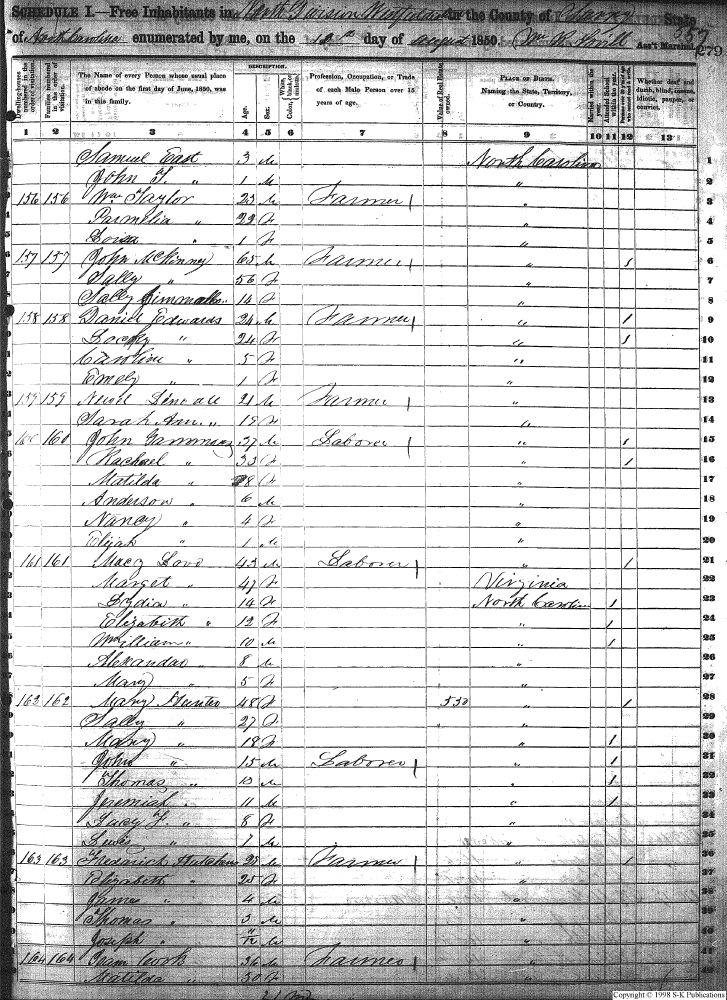 SCHEDULE I.—Free Inhabitants in North Division in the County of Surry State
of North Carolina enumerated by me, on the 10th day of August 1850. Wm Ass't Marshal. 357
279
Dwelling-houses numbered in the order of visitation.
Families numbered in the order of visitation.
The Name of every Person whose usual place of abode on the first day of June, 1850, was in this family.
DESCRIPTION.
Age.
Sex.
Color, White, black, or mulatto.
Profession, Occupation, or Trade of each Male Person over 15 years of age.
Value of Real Estate owned.
PLACE OF BIRTH. Naming the State, Territory, or Country.
Married within the year.
Attended School within the year.
Whether deaf and dumb, blind, insane, idiotic, pauper, or convict.
1 2 3 4 5 6 7 8 9 10 11 12 13
Samuel East 3 M North Carolina 1
John F. " 1 M " 2
156 156 Wm Taylor 23 M Farmer / " 3
Parmelia " 22 F " 4
" 1 F " 5
157 157 John McKinney 65 M Farmer / " / 6
Sally " 56 F " 7
Sally 14 F " 8
158 158 Daniel Edwards 24 M Farmer / " / 9
" 24 F " / 10
Caroline " 5 F " 11
Emely " 1 F " 12
159 159 21 M Farmer / 13
Sarah Ann " 19 F " 14
160 160 John Gammons 37 M Laborer / " / 15
Rachael " 33 F " / 16
Matilda " 8 F " 17
Anderson " 6 M " 18
Nancy " 4 F " 19
Elijah " 1 M " 20
161 161 Macy Love 43 M Laborer / " / 21
Marget " 47 F Virginia 22
Lydia " 14 F North Carolina / 23
Elizabeth " 12 F " / 24
William " 10 M " / 25
Alexandar " 8 M " 26
Mary " 5 F " 27
162 162 Mary Hunter 48 F 550 " / 28
Sally " 27 F " 29
Mary " 18 F " / 30
John " 15 M Laborer / " / 31
Thomas " 13 M " / 32
Jeremiah " 11 M " / 33
Lacy F. " 8 F " 34
Lewis " 7 M " 35
163 163 Frederick Hutchens 27 M Farmer / " / 36
Elizabeth " 25 F " 37
James " 4 M " 38
Thomas " 3 M " 39
Joseph " 11/12 M " 40
164 164 Cook 36 M Farmer " 41
Matilda " 30 F " 42
Copyright © 1998 S-K Publications